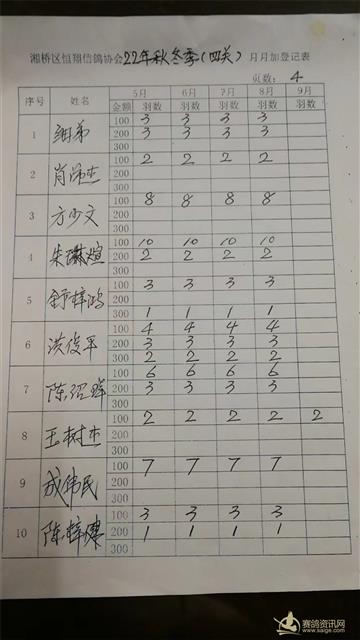 湘桥区恒翔信鸽协会22年秋冬季(四关)月月加登记表
页数: 4
序号 姓名 5月 6月 7月 8月 9月
金额 羽数 羽数 羽数 羽数 羽数
1 细弟 100 3 3 3 3
200 3 3 3 3
300
2 肖沛杰 100 2 2 2 2
200
300
3 方少文 100 8 8 8 8
200
300
4 朱琳煊 100 10 10 10 10
200 2 2 2 2
300
5 舒梓鸿 100 3 3 3 3
200
300 1 1 1 1
6 洪俊平 100 4 4 4 4
200 3 3 3 3
300 2 2 2 2
7 陈绍辉 100 6 6 6 6
200 3 3 3 3
300
8 王树杰 100 2 2 2 2 2
200
300
9 成伟民 100 7 7 7 7
200
300
10 陈梓健 100 3 3 3 3
200 1 1 1 1
300
赛鸽资讯网
www.saige.com